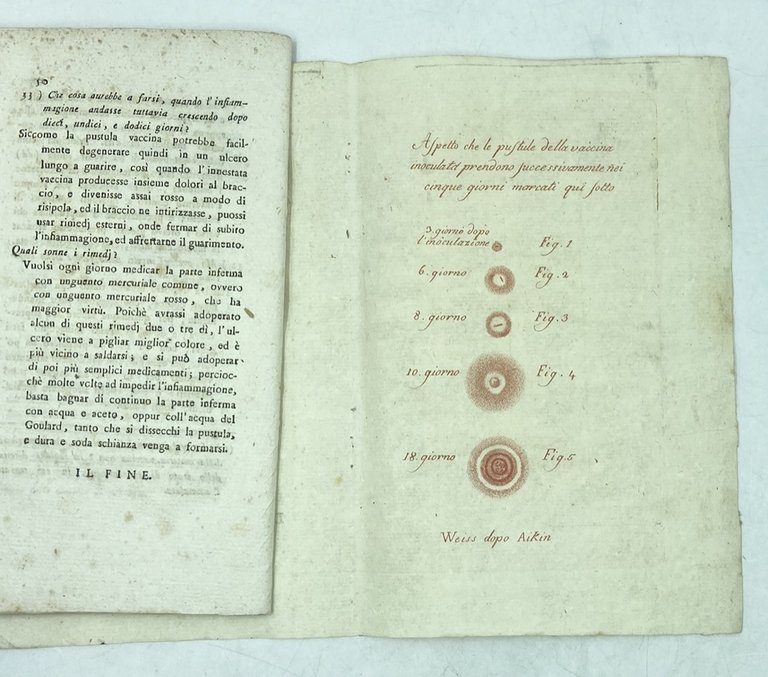 50
33 ) Che cosa aurebbe a farsi, quando l'infiam-
magione andasse tuttavia crescendo dopo
dieci, undici, e dodici giorni?
Siccome la pustula vaccina potrebbe facil-
mente degenerare quindi in un ulcero
lungo a guarire, così quando l'innestata
vaccina producesse insieme dolori al brac-
cio, e divenisse assai rosso a modo di
risipola, ed il braccio ne intirizzasse, puossi
usar rimedj esterni, onde fermar di subito
l'infiammagione, ed affrettarne il guarimento.
Quali sonne i rimedj?
Vuolsi ogni giorno medicar la parte inferma
con unguento mercuriale comune, ovvero
con unguento mercuriale rosso, che ha
maggior virtù. Poichè avrassi adoperato
alcun di questi rimedj due o tre dì, l'ul-
cero viene a pigliar miglior colore, ed è
più vicino a saldarsi; e si può adoperar
di poi più semplici medicamenti; percioc-
chè molte volte ad impedir l'infiammagione,
basta bagnar di continuo la parte inferma
con acqua e aceto, oppur coll'acqua del
Goulard, tanto che si dissecchi la pustula,
e dura e soda schianza venga a formarsi.
IL FINE.
Aspetto che le pustule della vaccina
inoculata prendono successivamente nei
cinque giorni marcati qui sotto
3. giorno dopo
l'inoculazione Fig. 1
6. giorno Fig. 2
8. giorno Fig. 3
10. giorno Fig. 4
18. giorno Fig. 5
Weiss dopo Aikin